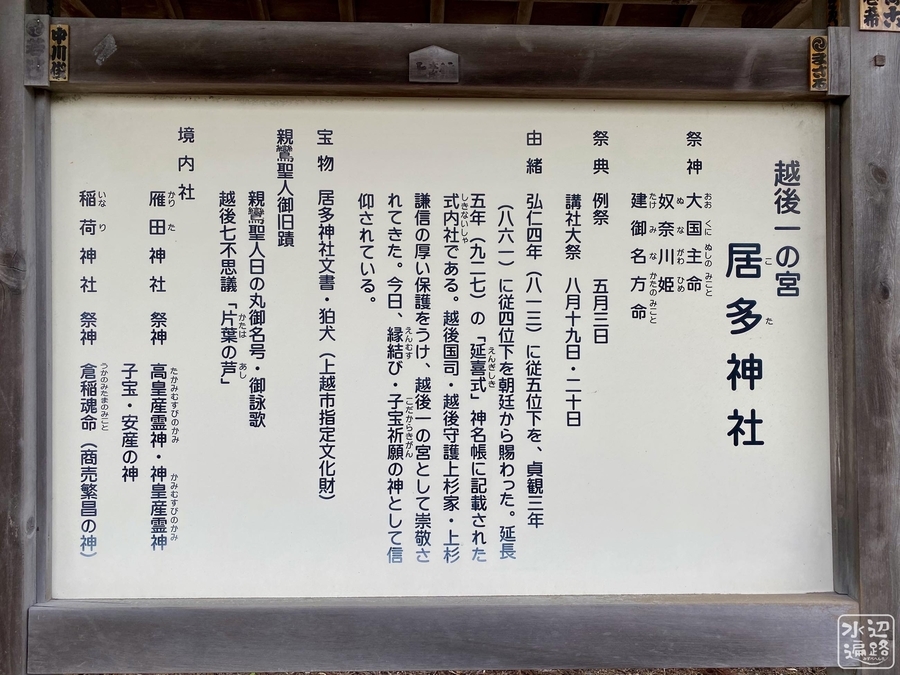 越後一の宮
居多神社
祭神 大国主命
奴奈川姫
建御名方命
祭典 例祭 五月三日
講社大祭 八月十九日・二十日
由緒 弘仁四年（八一三）に従五位下を、貞観三年
（八六一）に従四位下を朝廷から賜わった。延長
五年（九二七）の「延喜式」神名帳に記載された
式内社である。越後国司・越後守護上杉家・上杉
謙信の厚い保護をうけ、越後一の宮として崇敬さ
れてきた。今日、縁結び・子宝祈願の神として信
仰されている。
宝物 居多神社文書・狛犬（上越市指定文化財）
親鸞聖人御旧蹟
親鸞聖人日の丸御名号・御詠歌
越後七不思議「片葉の芦」
境内社
雁田神社 祭神 高皇産霊神・神皇産霊神
子宝・安産の神
稲荷神社 祭神 倉稲魂命（商売繁昌の神）
中川
水辺遍路